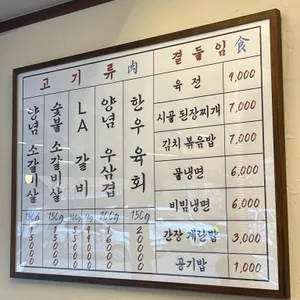 고기류 肉
양념 소갈비살
숯불 소갈비살
LA 갈비
양념 우삼겹
한우 육회
150g
200g
150g
곁들임 食
육전 9,000
시골 된장찌개 7,000
김치 볶음밥 7,000
물냉면 6,000
비빔냉면 6,000
간장 계란밥 3,000
공기밥 1,000